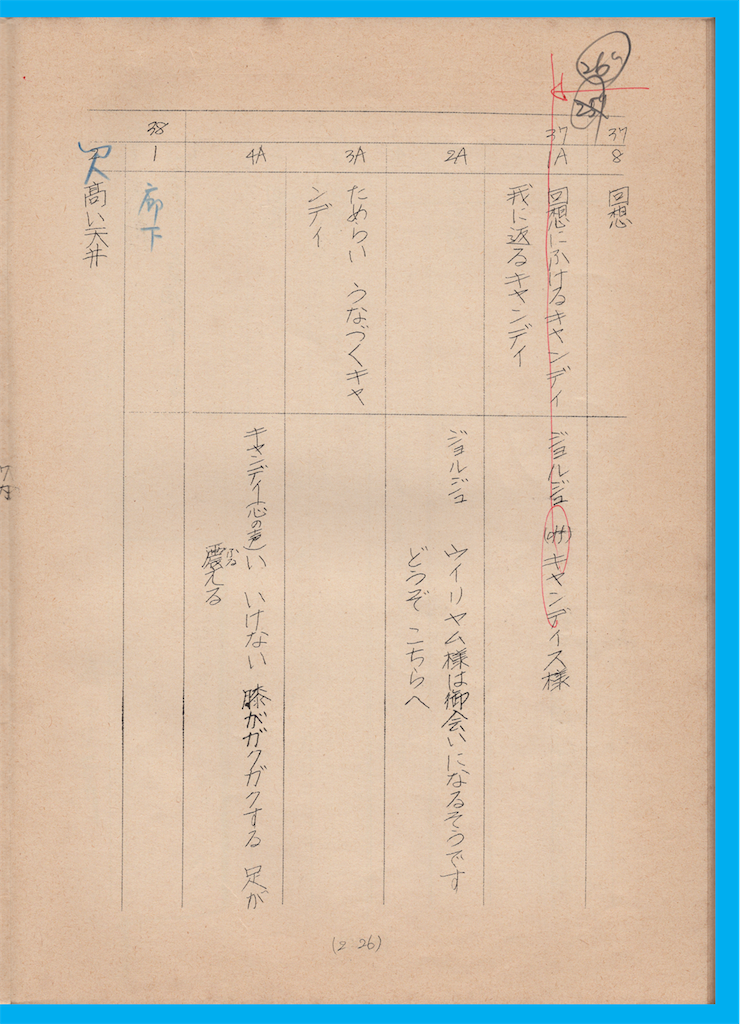 26'
37
8
回想
37
1A
回想にふけるキャンディ
ジョルジュ(off)キャンディス様
我に返るキャンディ
2A
ジョルジュ ウイリヤム様は御会いになるそうです
どうぞ こちらへ
3A
ためらい うなづくキャ
ンディ
4A
キャンディ(心の声)い いけない 膝がガクガクする 足が
震える
ふる
38
1
廊下
欠
高い天井
(2 26)